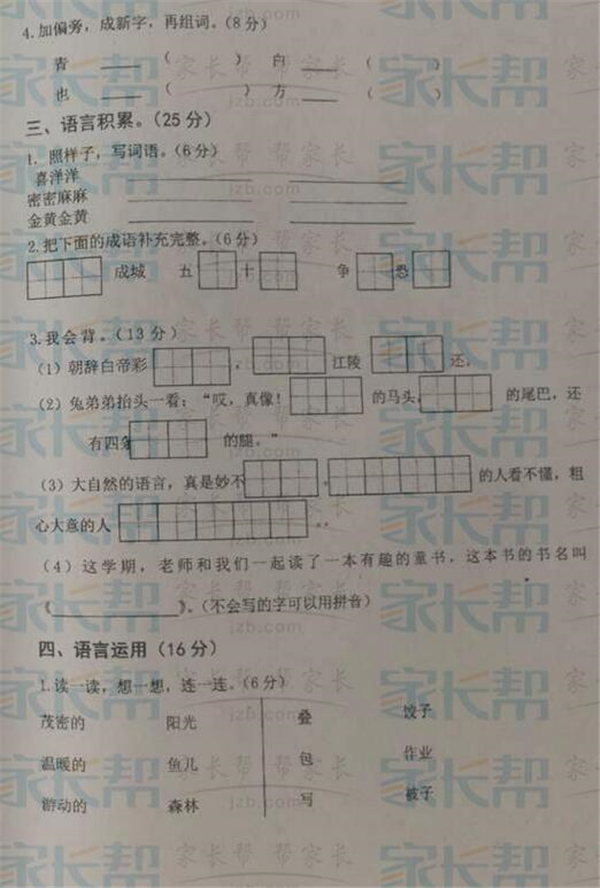 4.加偏旁，成新字，再组词。(8分)
青 ____ （ ） 白 ____ （ ）
也 ____ （ ） 方 ____ （ ）
三、语言积累。(25分)
1. 照样子，写词语。(6分)
喜洋洋
密密麻麻
金黄金黄
2.把下面的成语补充完整。(6分)
成城 五 十 争 恐
3.我会背。(13分)
(1) 朝辞白帝彩 ， 江陵 还.
(2) 兔弟弟抬头一看：“哎，真像! 的马头, 的尾巴，还
有四条 的腿。”
(3) 大自然的语言，真是妙不 。 的人看不懂，粗
心大意的人 ..
(4) 这学期，老师和我们一起读了一本有趣的童书，这本书的书名叫
《____________》。(不会写的字可以用拼音)
四、语言运用(16分)
1.读一读，想一想，连一连。(6分)
茂密的 阳光 叠 饺子
温暖的 鱼儿 包 作业
游动的 森林 写 被子
家长帮
jzb.com